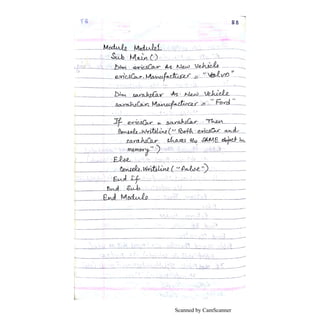 Module Module1
Sub Main()
Dim ericsCar As New Vehicle
ericsCar.Manufacturer = "Volvo"
Dim sarahsCar As New Vehicle
sarahsCar.Manufacturer = "Ford"
If ericsCar = sarahsCar Then
Console.Writeline("Both ericsCar and
sarahsCar shares the SAME object in
memory")
Else
Console.Writeline("False")
End If
End Sub
End Module
Scanned by CamScanner